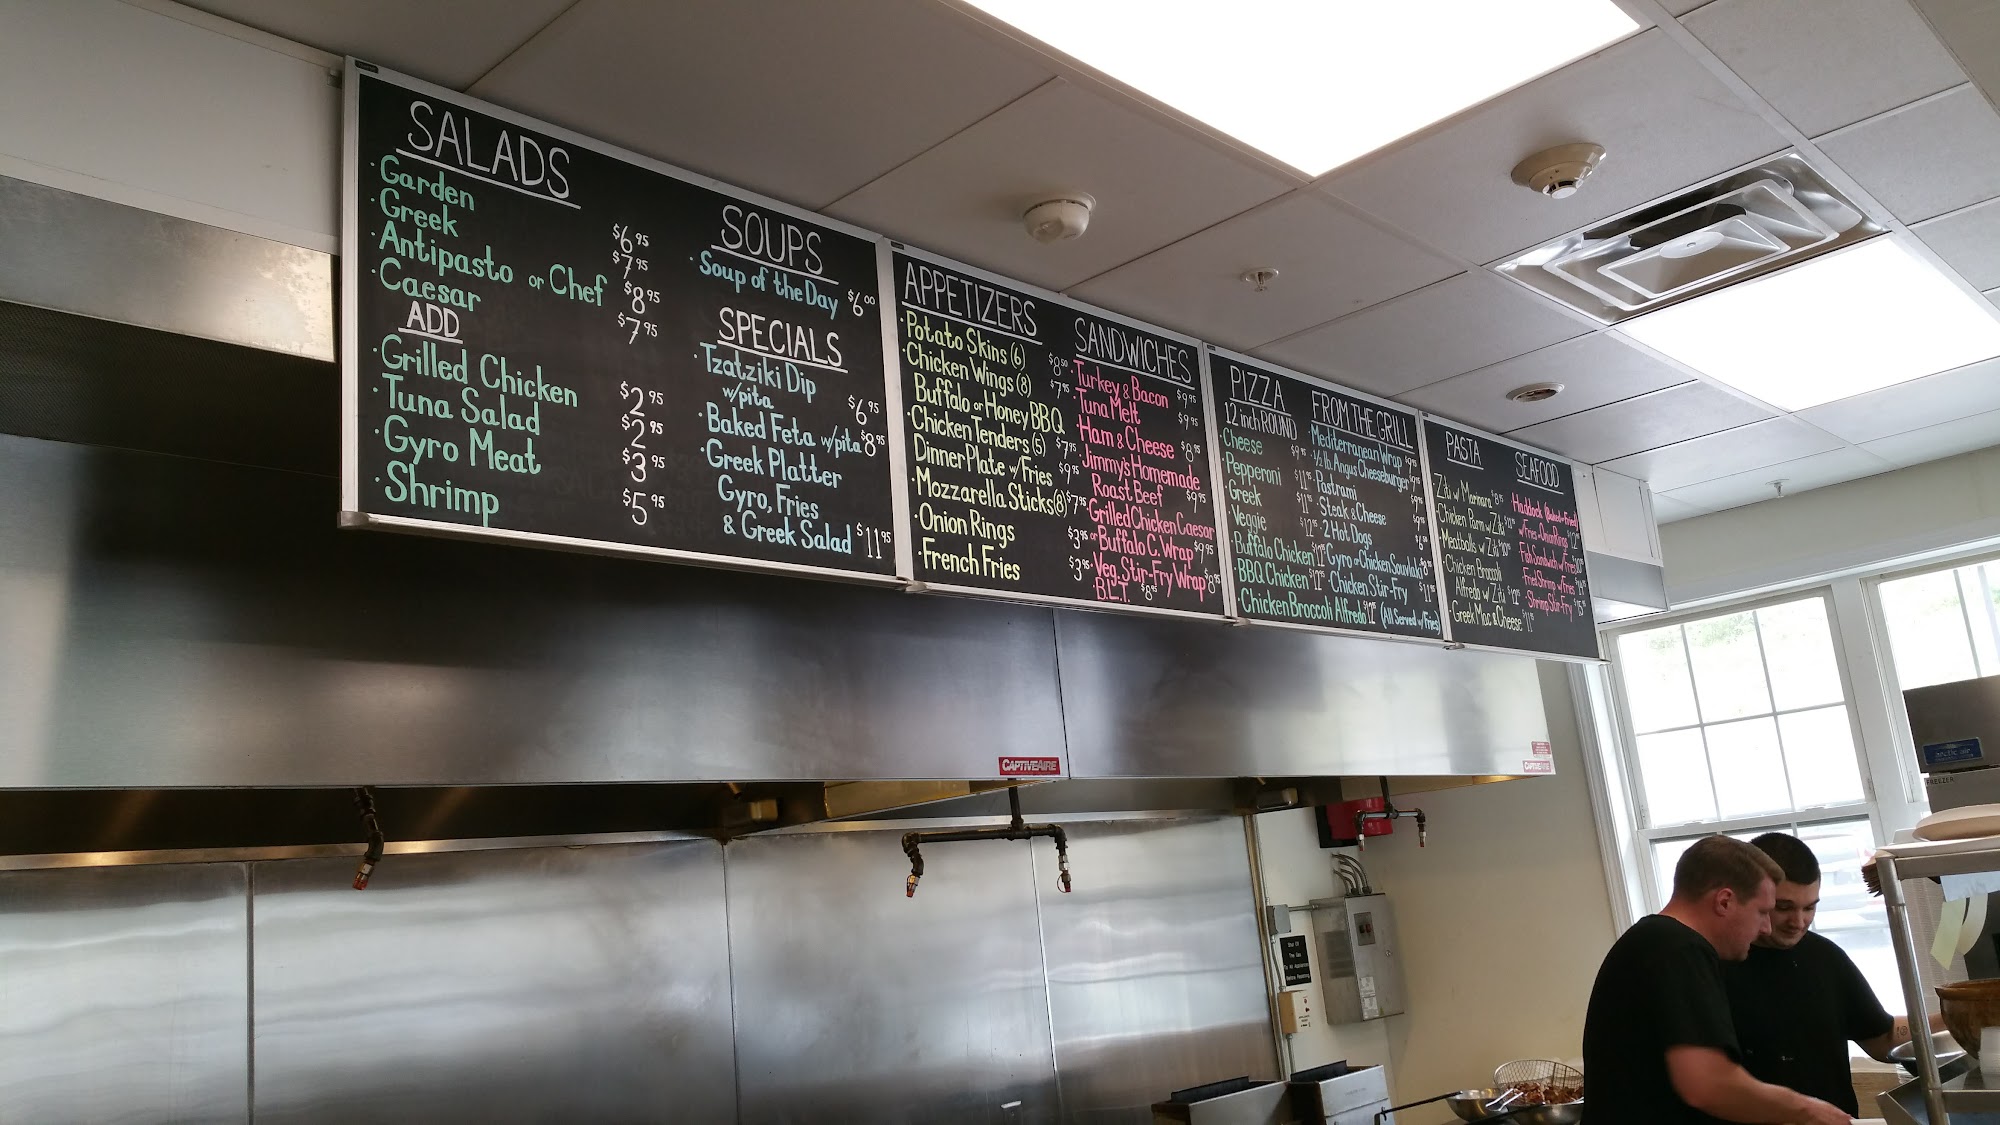 SALADS
· Garden $6.95
· Greek $7.95
· Antipasto or Chef $8.95
· Caesar $7.95
ADD
· Grilled Chicken $2.95
· Tuna Salad $2.95
· Gyro Meat $3.95
· Shrimp $5.95
SOUPS
· Soup of the Day $6.00
SPECIALS
· Tzatziki Dip
w/pita $6.95
· Baked Feta w/pita $8.95
· Greek Platter
Gyro, Fries
& Greek Salad $11.95
APPETIZERS
· Potato Skins (6) $8.50
· Chicken Wings (8) $7.95
Buffalo or Honey BBQ
· Chicken Tenders (5) $7.95
Dinner Plate w/Fries $9.95
· Mozzarella Sticks (8) $7.95
· Onion Rings $3.95
· French Fries $3.95
SANDWICHES
· Turkey & Bacon $9.95
· Tuna Melt $9.95
· Ham & Cheese $8.95
· Jimmy's Homemade
Roast Beef $9.95
· Grilled Chicken Caesar
or Buffalo C. Wrap $9.95
· Veg. Stir-Fry Wrap $8.95
B.L.T. $8.95
PIZZA
12 inch ROUND
· Cheese $9.95
· Pepperoni $11.95
· Greek $11.95
· Veggie $12.95
· Buffalo Chicken $12.95
· BBQ Chicken $12.95
· Chicken Broccoli Alfredo $12.95
FROM THE GRILL
· Mediterranean Wrap $9.95
· ½ lb. Angus Cheeseburger $9.95
· Pastrami $9.95
· Steak & Cheese $9.95
· 2 Hot Dogs
· Gyro or Chicken Souvlaki
· Chicken Stir-Fry $11.95
(All Served w/Fries)
PASTA
· Ziti w/ Marinara $8.95
· Chicken Parm w/ Ziti
· Meatballs w/ Ziti
· Chicken Broccoli
Alfredo w/ Ziti $12.95
· Greek Mac & Cheese $11.95
SEAFOOD
Haddock (Baked or Fried)
w/Fries or Onion Rings
Fish Sandwich w/Fries
Fried Shrimp w/ Fries
Shrimp Stir-Fry
CAPTIVEAIRE
CAPTIVEAIRE
arctic air
FREEZER